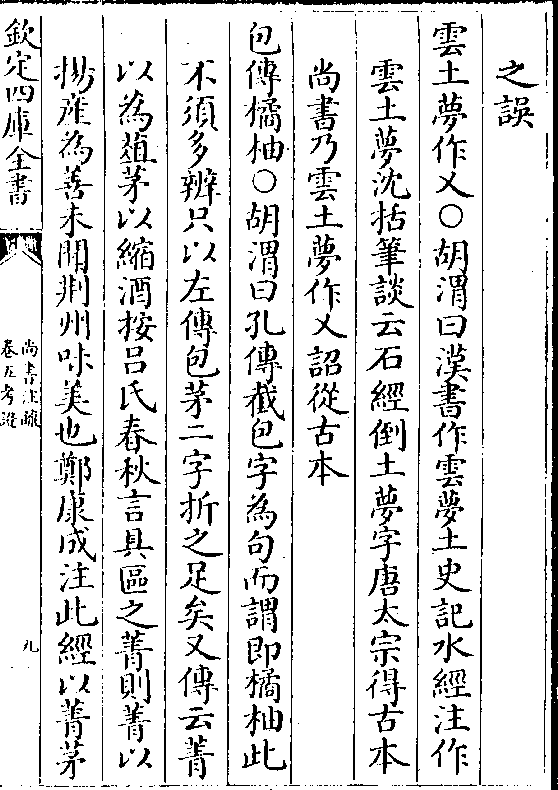 之誤
雲土夢作乂○胡渭曰漢書作雲夢土史記水經注作
雲土夢沈括筆談云石經倒土夢字唐太宗得古本
尚書乃雲土夢作乂詔從古本
包傳橘柚○胡渭曰孔傳截包字為句而謂即橘柚此
不須多辨只以左傳包茅二字折之足矣又傳云菁
以為葅茅以縮酒按吕氏春秋言具區之菁則菁以
揚產為善未聞荆州味美也鄭康成注此經以菁茅
欽定四庫全書
尚書注疏
卷五考證
九